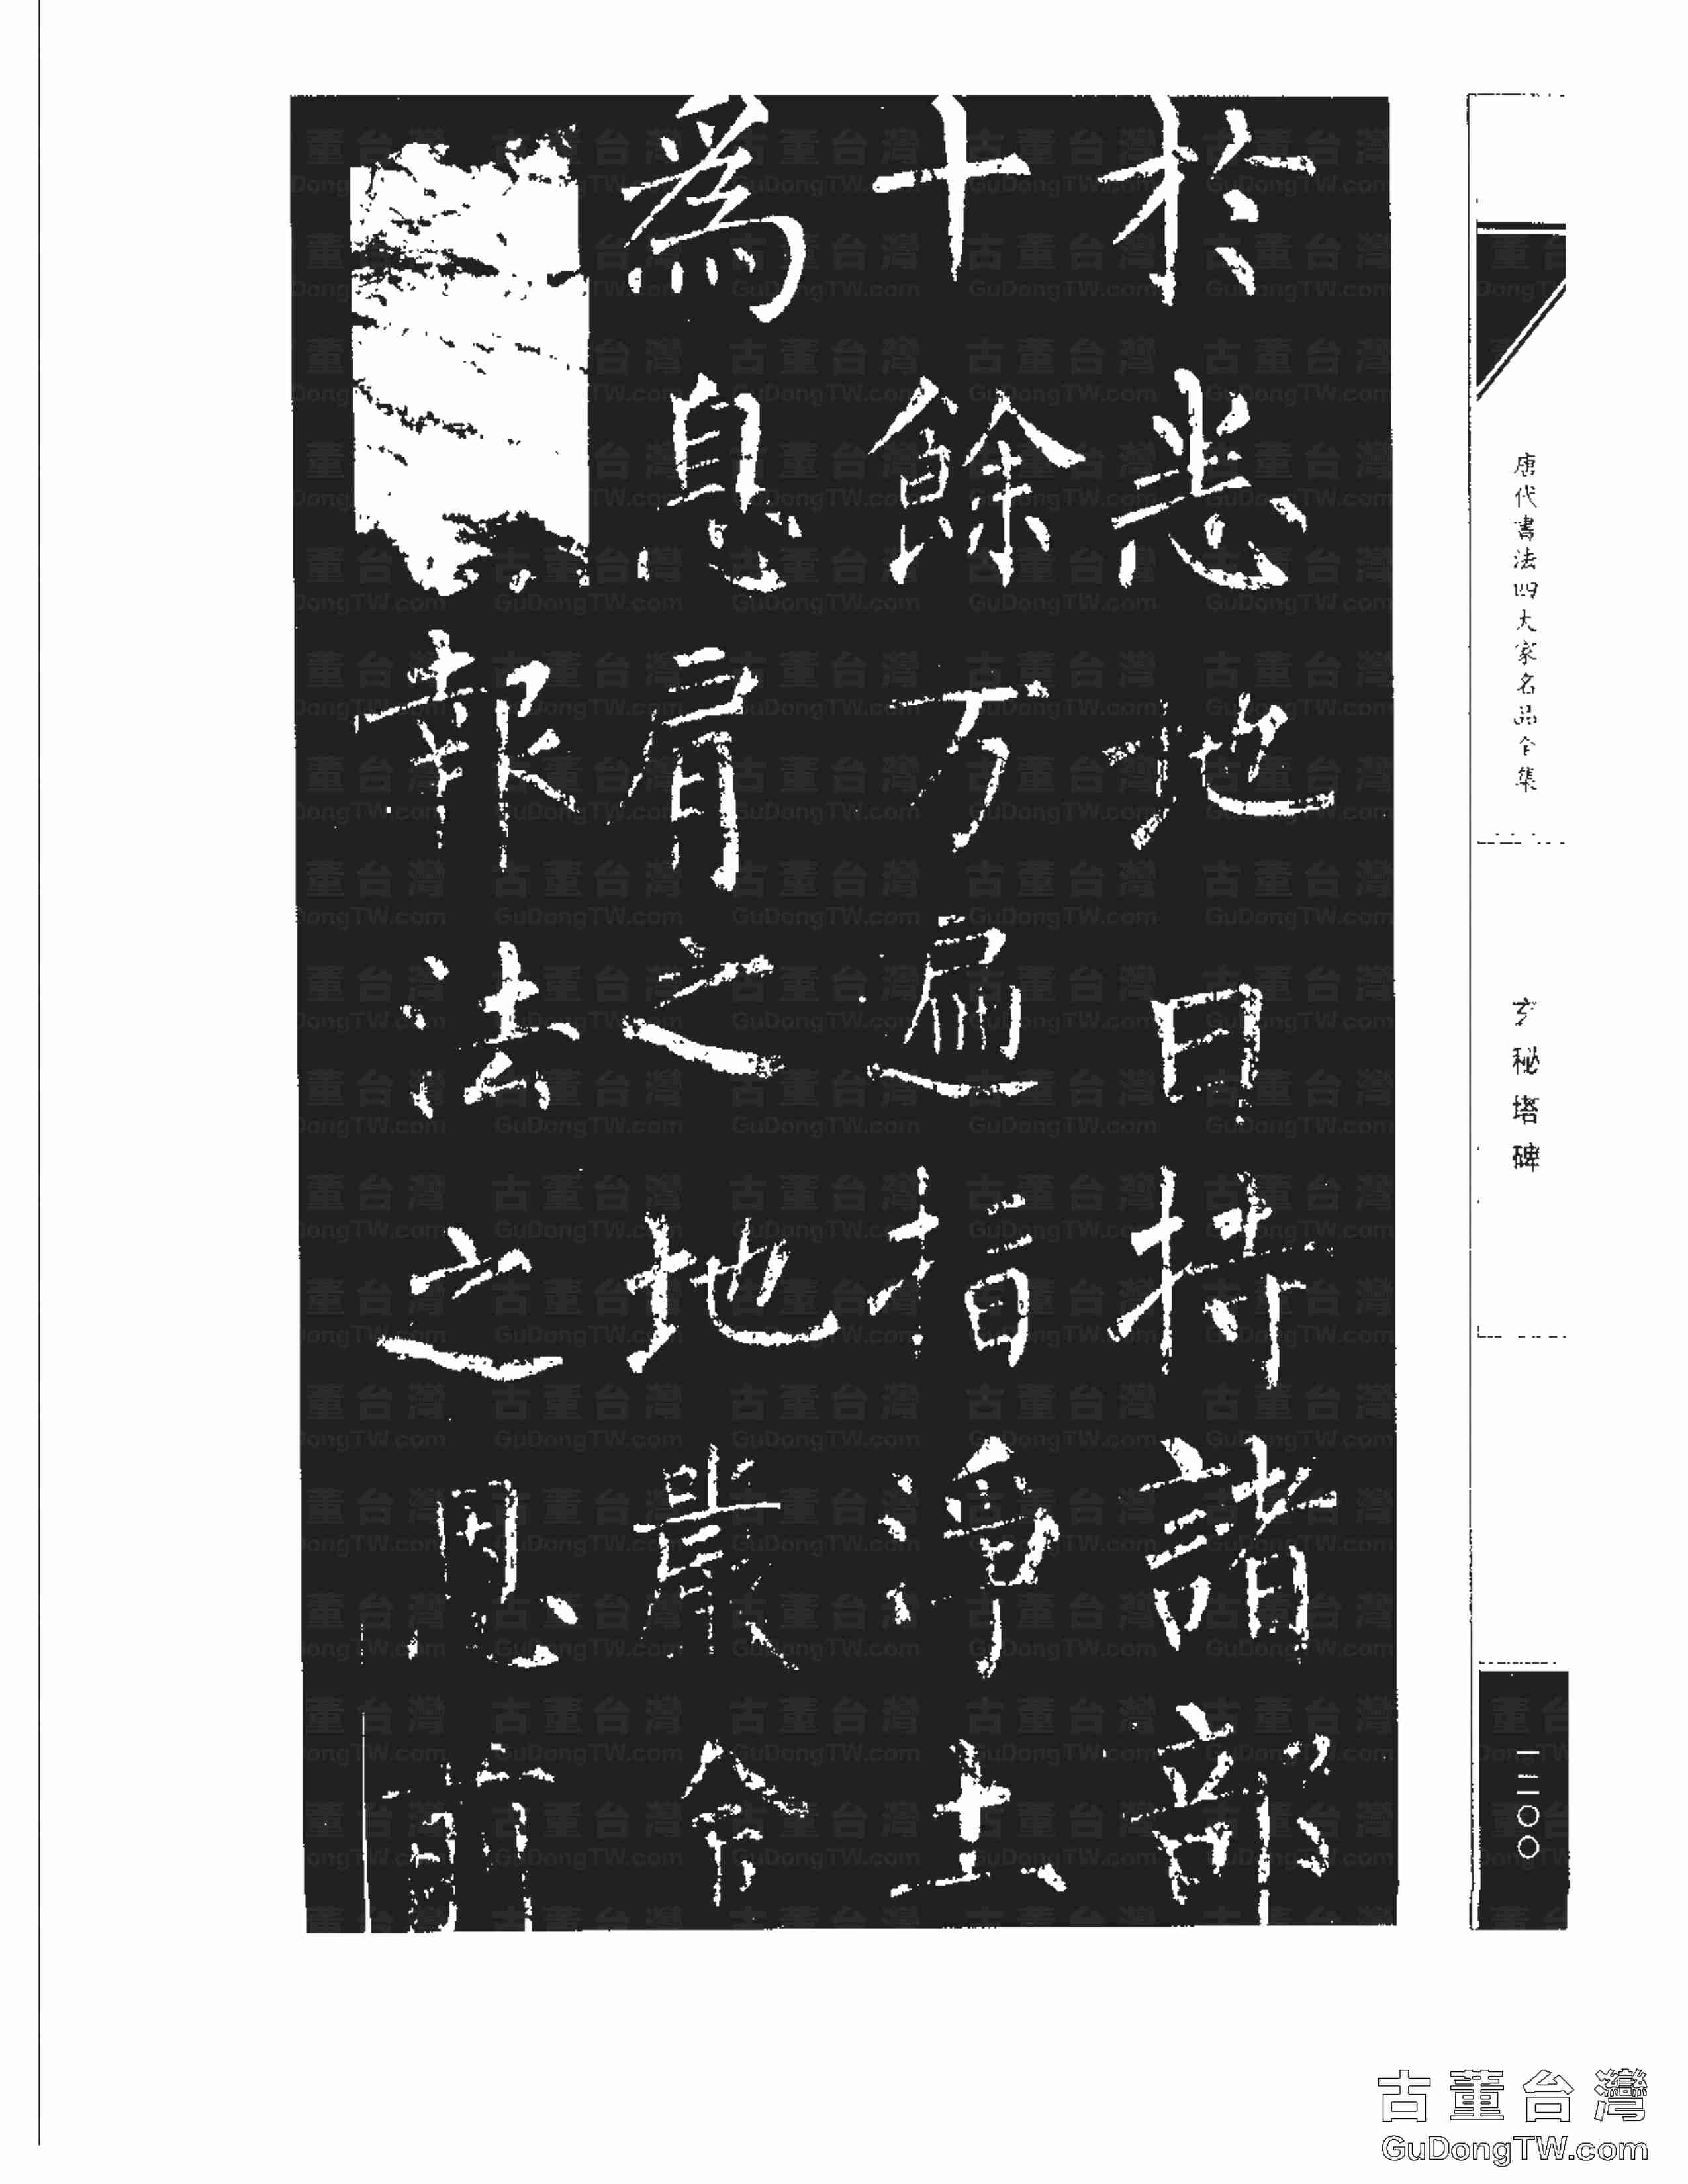 於悉地日持諸部
十餘万遍指淨土
爲息肩之地嚴命
報法之恩前
唐代書法四大家名品全集
玄秘塔碑
一三二〇〇
古董台灣
GuDongTW.com